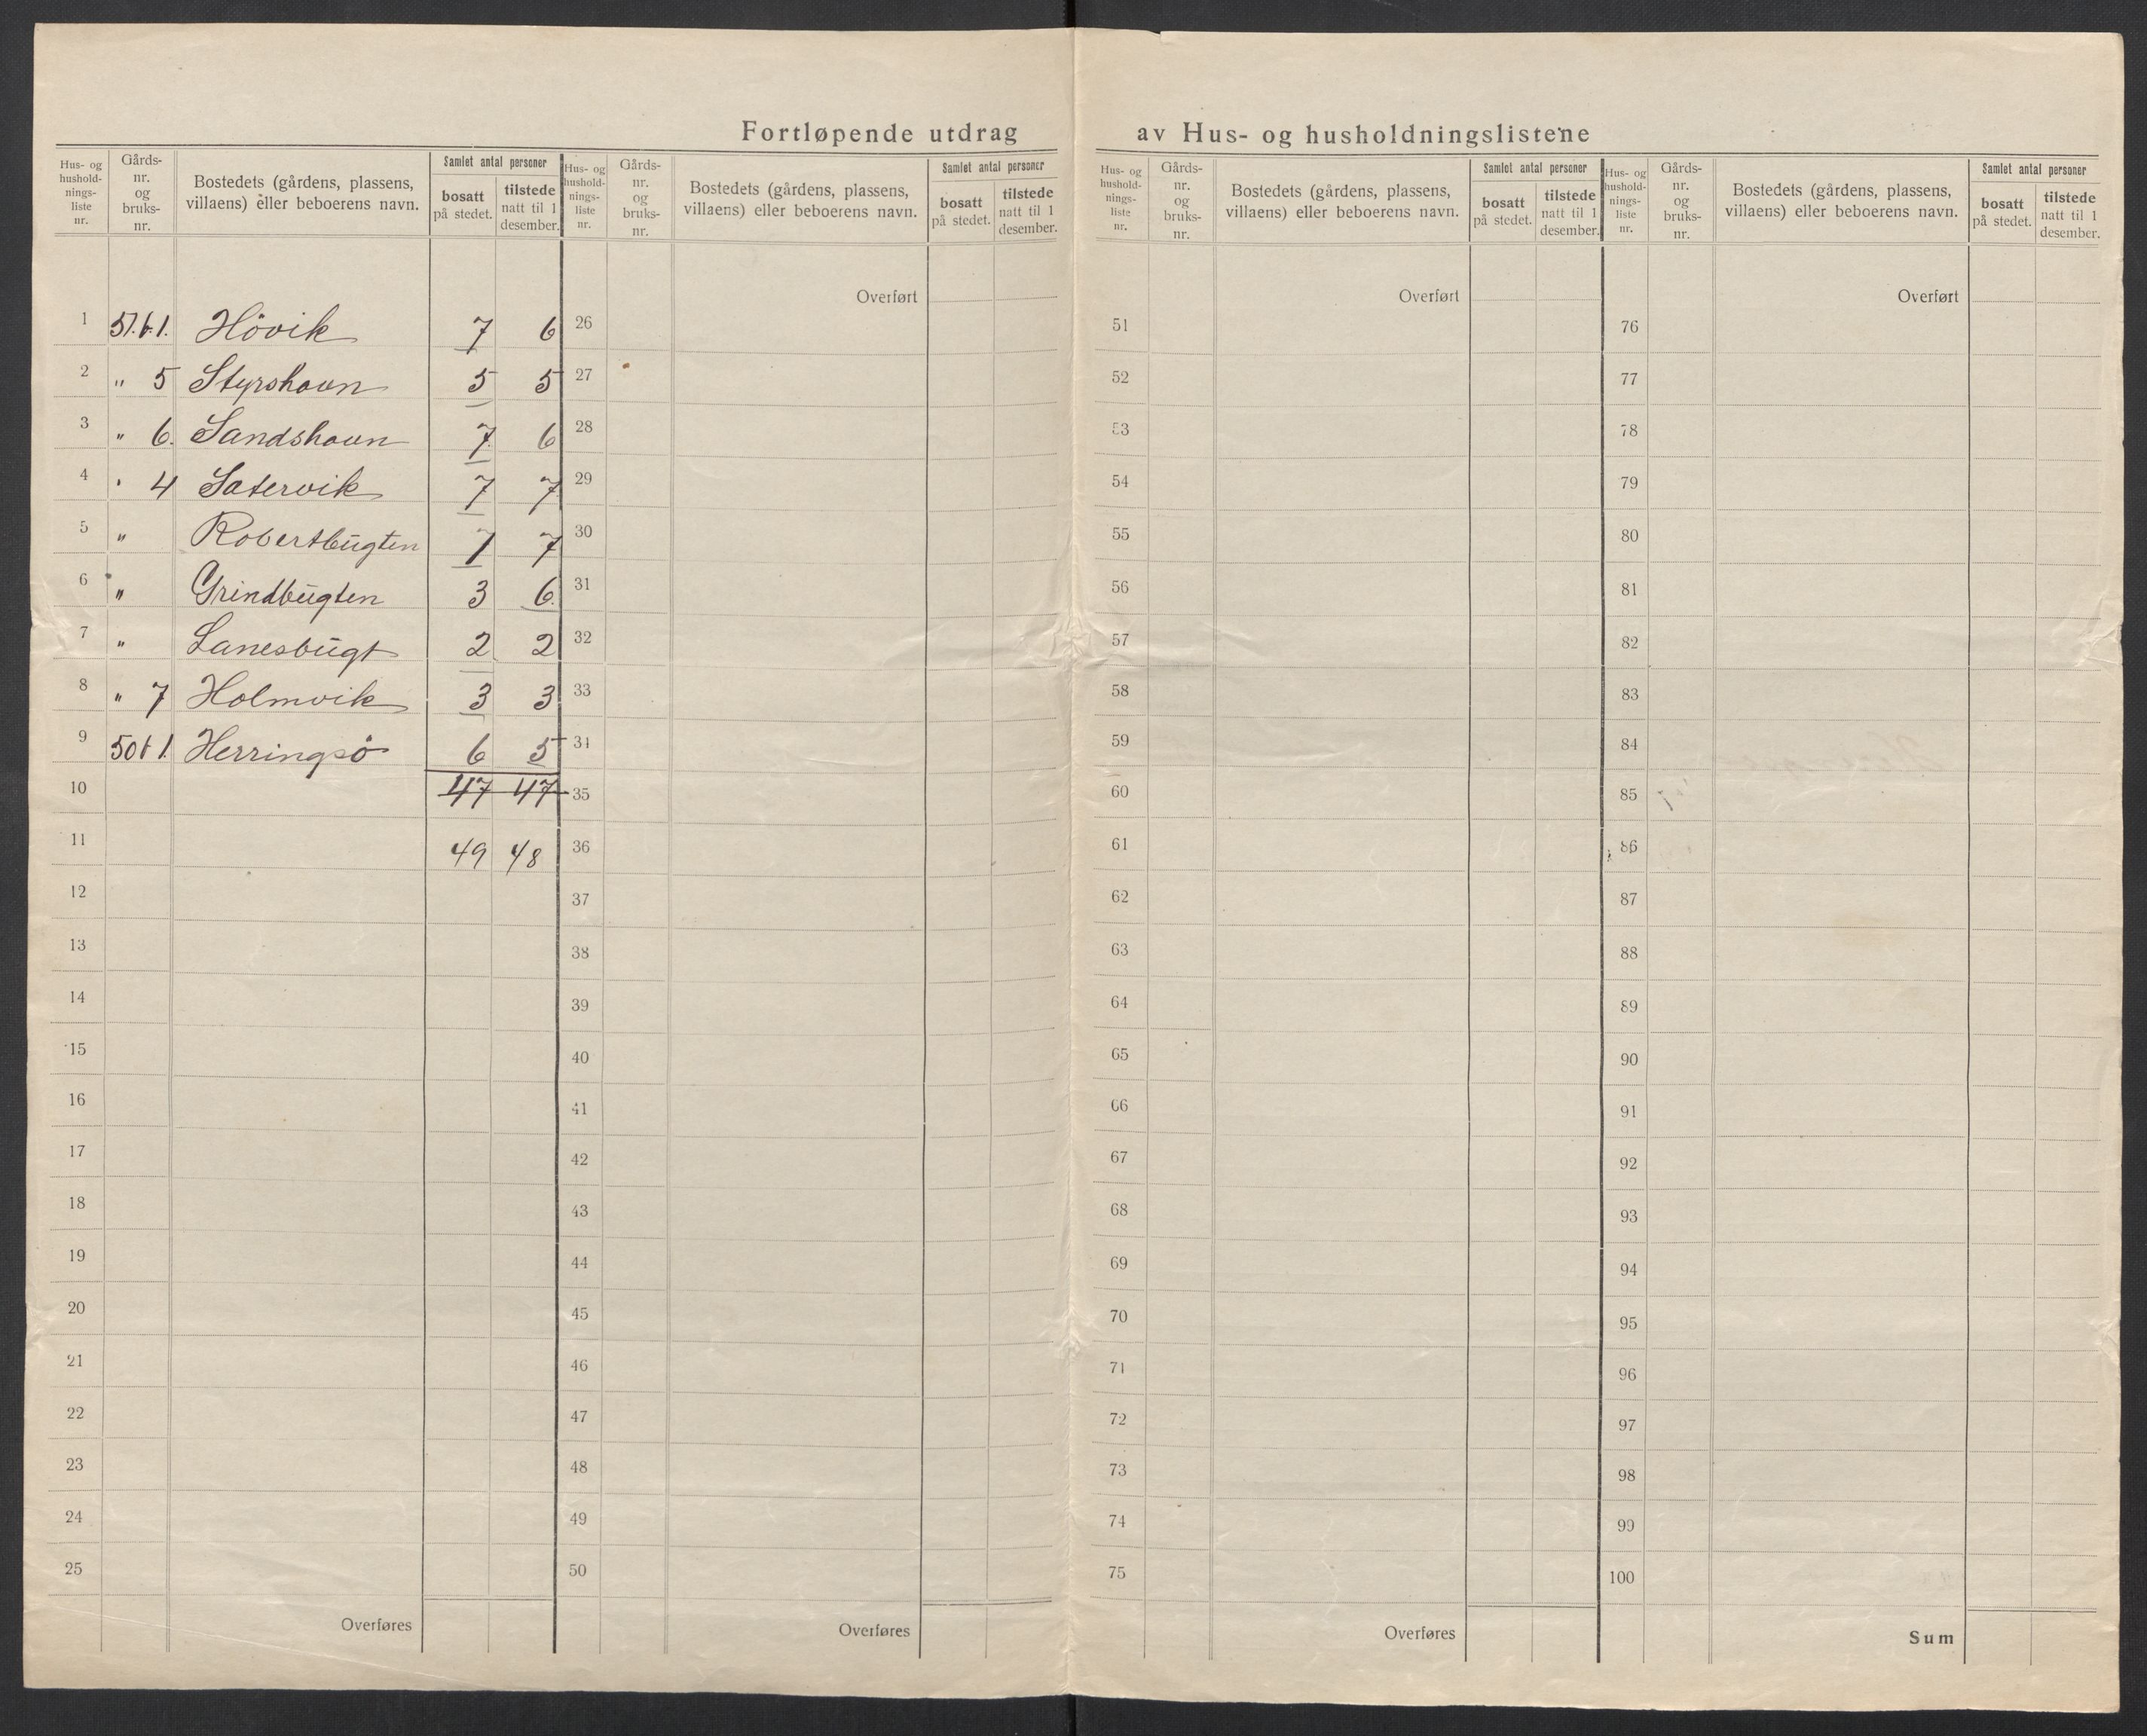 Fortløpende utdrag av Hus- og husholdningslistene
Hus- og husholdnings-liste nr. Gårds-nr. og bruks-nr. Bostedets (gårdens, plassens, villaens) eller beboerens navn. Samlet antal personer bosatt på stedet. tilstede natt til 1 desember.
Hus- og husholdnings-liste nr. Gårds-nr. og bruks-nr. Bostedets (gårdens, plassens, villaens) eller beboerens navn. Samlet antal personer bosatt på stedet. tilstede natt til 1 desember.
Hus- og husholdnings-liste nr. Gårds-nr. og bruks-nr. Bostedets (gårdens, plassens, villaens) eller beboerens navn. Samlet antal personer bosatt på stedet. tilstede natt til 1 desember.
Hus- og husholdnings-liste nr. Gårds-nr. og bruks-nr. Bostedets (gårdens, plassens, villaens) eller beboerens navn. Samlet antal personer bosatt på stedet. tilstede natt til 1 desember.
Overført Overført Overført
1 51.b.1. Hövik 7 6 26 51 76
2 " 5 Styrshavn 5 5 27 52 77
3 " 6. Sandshavn 7 6 28 53 78
4 " 4 Satervik 7 7 29 54 79
5 " Robertbugten 7 7 30 55 80
6 " Grindbugten 3 6. 31 56 81
7 " Lanesbugt 2 2 32 57 82
8 " 7 Holmvik 3 3 33 58 83
9 50 b 1. Herringsö 6 5 34 59 84
10 47 47 35 60 85
11 49 48 36 61 86
12 37 62 87
13 38 63 88
14 39 64 89
15 40 65 90
16 41 66 91
17 42 67 92
18 43 68 93
19 44 69 94
20 45 70 95
21 46 71 96
22 47 72 97
23 48 73 98
24 49 74 99
25 50 75 100
Overføres Overføres Overføres Sum